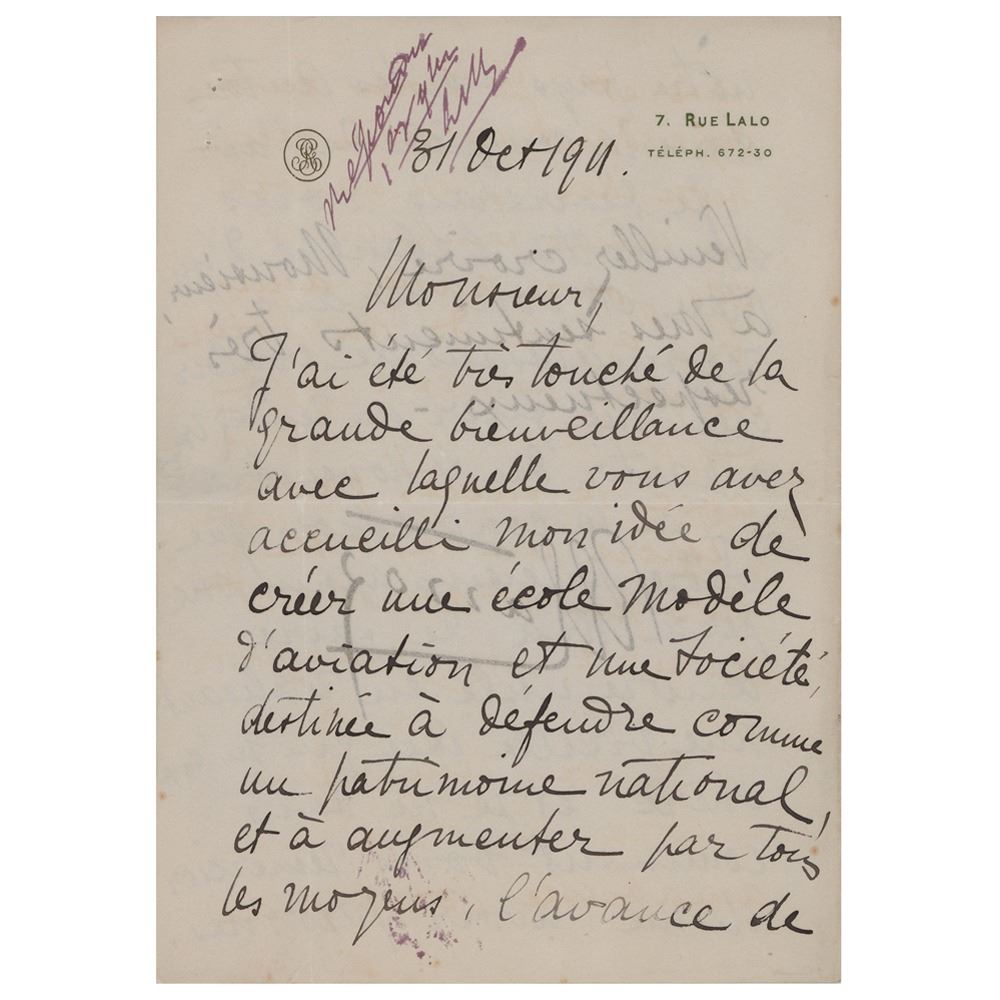 7. RUE LALO
TÉLÉPH. 672-30
31 Oct 1911.
Monsieur,
J'ai été très touché de la
grande bienveillance
avec laquelle vous avez
accueilli mon idée de
créer une école modèle
d'aviation et une Société,
destinée à défendre comme
un patrimoine national,
et à augmenter par tous
les moyens, l'avance de
Veuillez croire, Monsieur
à mes sentiments très
respectueux -